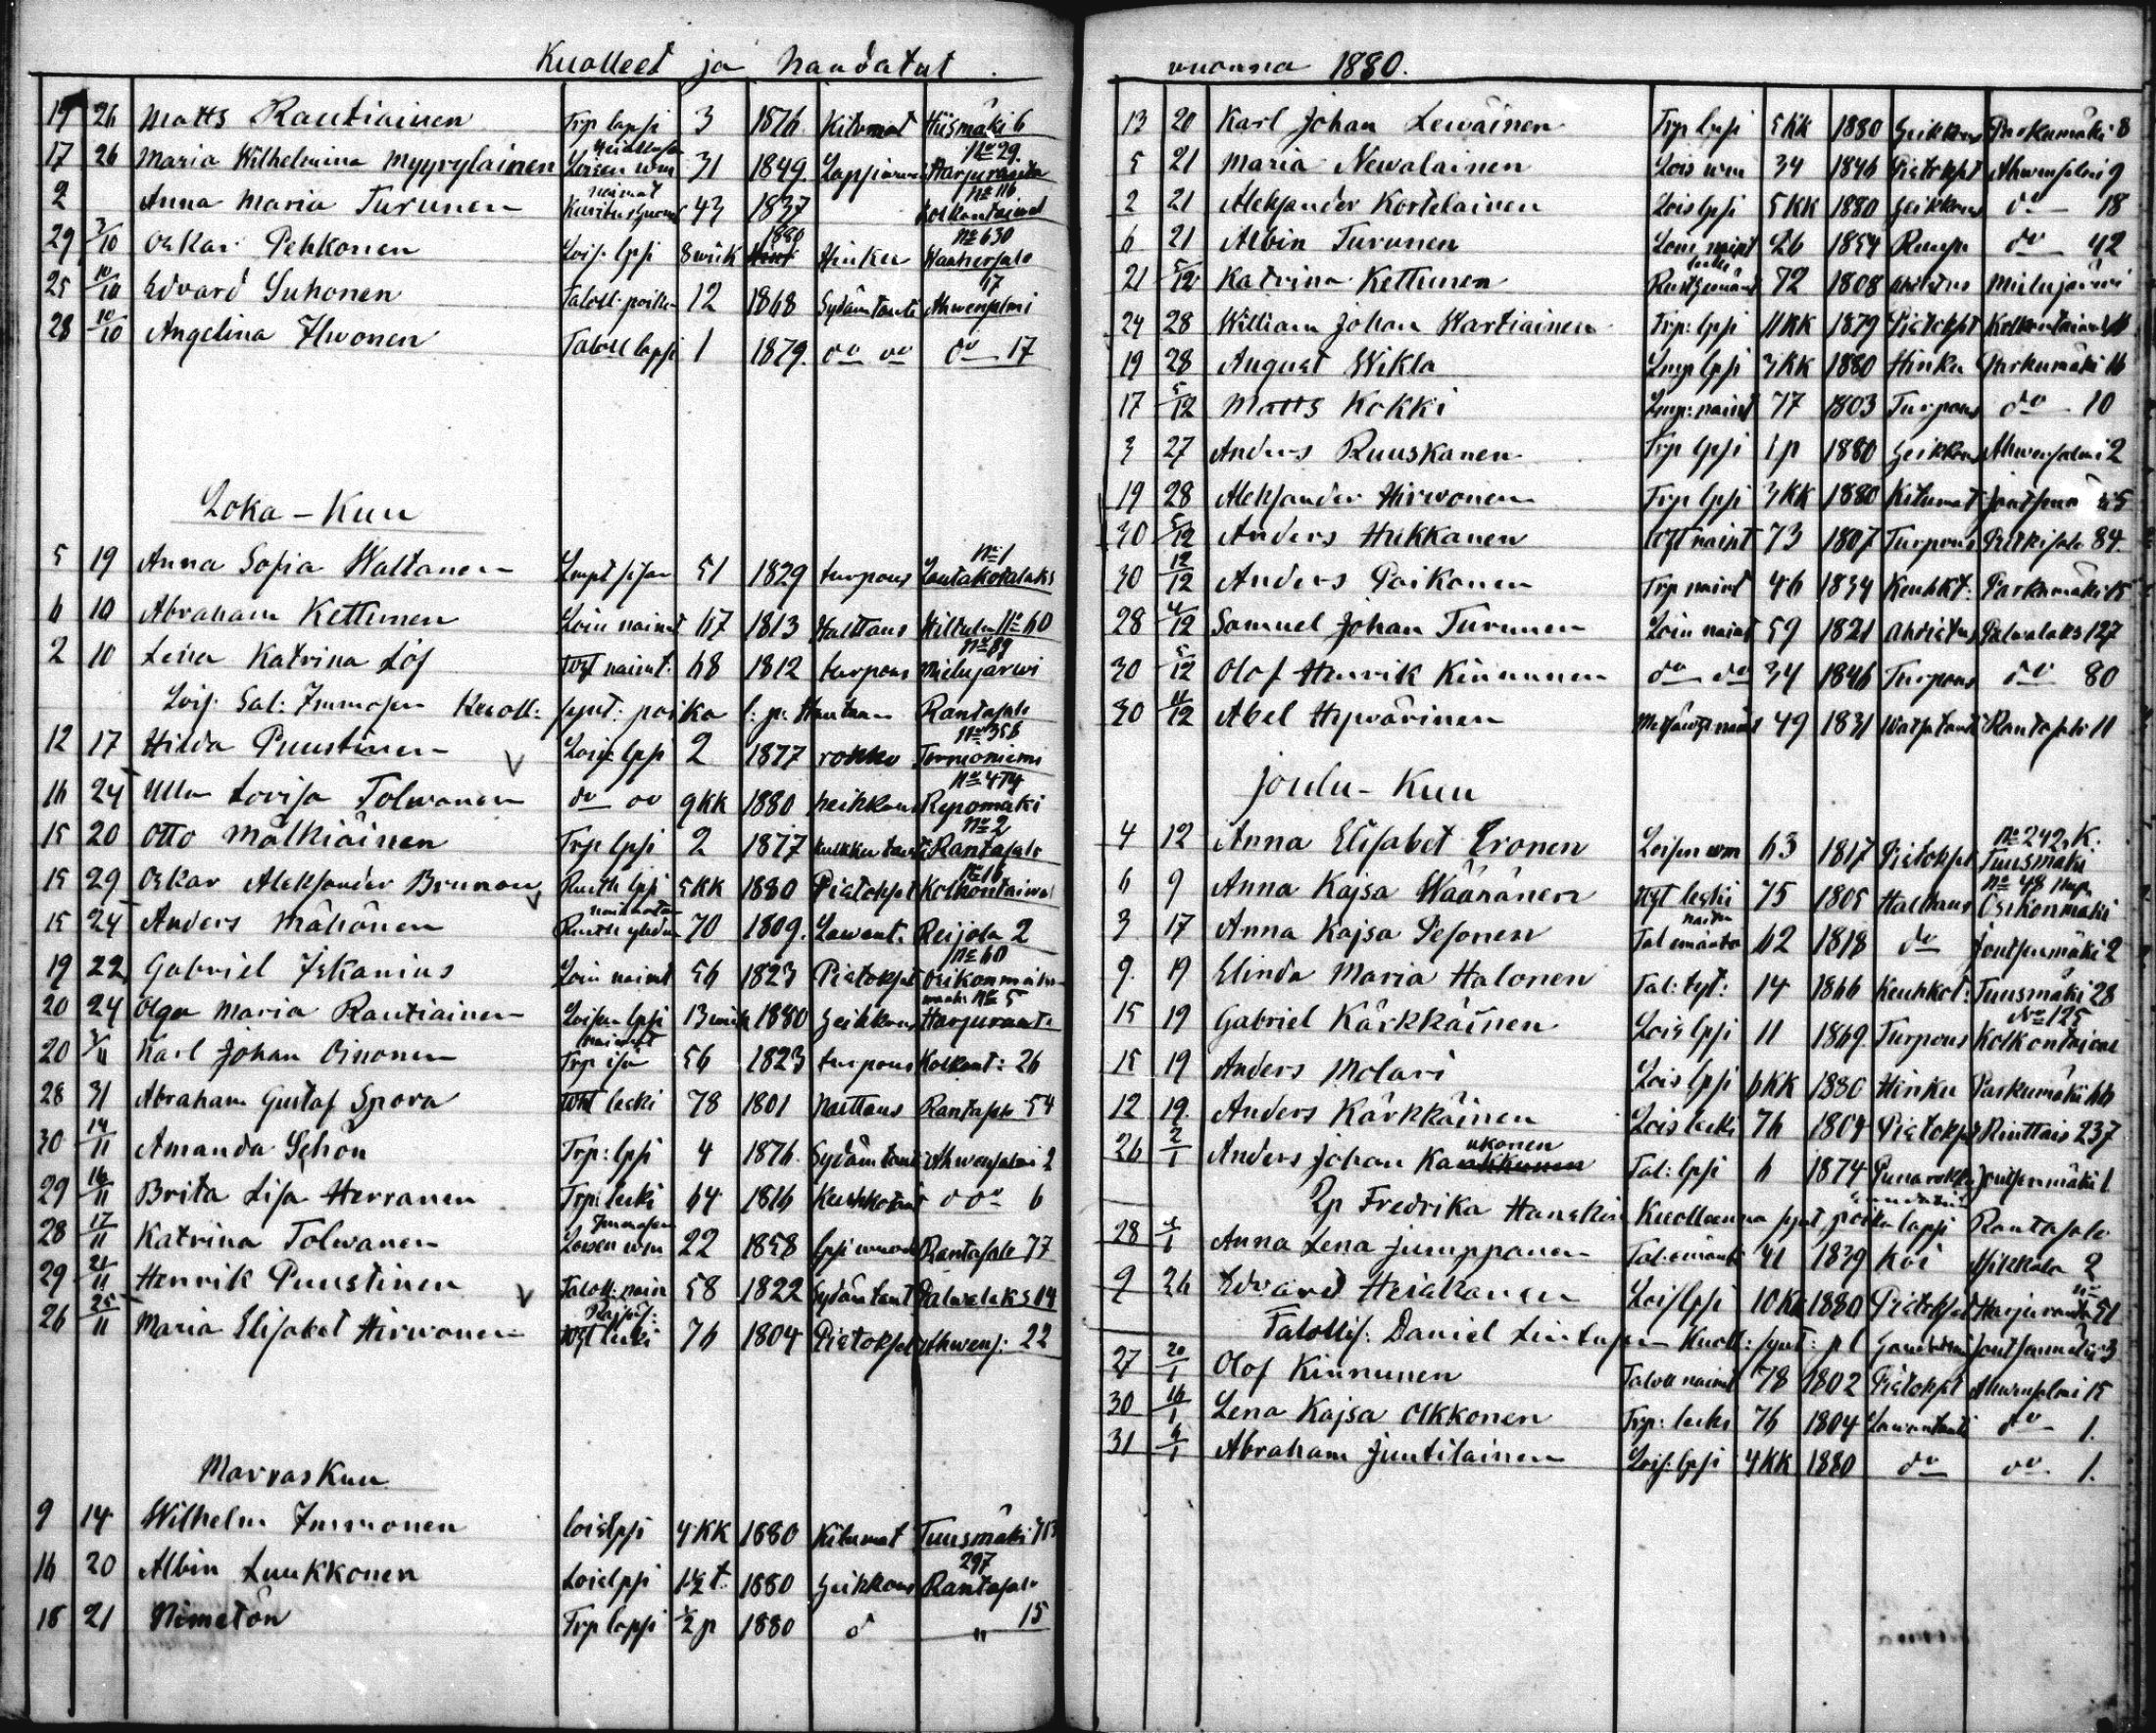 Kuolleet ja haudatut
19 26 Matts Rautiainen Trp lapsi 3 1876 Kitumat Hiismäki 6
17 26 Maria Wilhelmina Myyryläinen Loisen wm 31 1849 Harjuranta No 29
2 Anna Maria Turunen 43 1837 Kolkontaival No 116
29 3/10 Oskar Pehkonen Lois. lpsi 8 wiik 1880 Hinku Wanhersalo No 630
25 10/10 Edvard Suhonen Taloll. poika 12 1868 Sydämtauti Ahwensalmi 17
28 10/10 Angelina Ihwonen Taloll lapsi 1 1879 do do do 17
Loka-Kuu
5 19 Anna Sofia Waltanen 51 1829 turpous Lautakotalaks No 1
6 10 Abraham Kettunen Lois naimt 67 1813 Halttaus No 60
2 10 Lena Katrina Löf wgt naimt. 68 1812 turpous Mielujärwi No 89
Lois. Sal: Immosen Kuoll: synt: poika Rantasalo
12 17 Hilda Puustinen V Lois lpsi 2 1877 rokko Termoniemi No 356
16 24 Ulla Lovisa Tolwanen do do 9 KK 1880 heikkous Repomäki No 474
15 20 Otto Mälkiäinen Trp lpsi 2 1877 Rantasalo No 2
15 29 Oskar Aleksander Brunou Ruotil lpsi 5 KK 1880 Pistokset Kolkontaival No 16
15 24 Anders Mähönen 70 1809 Lawant. Reijola 2
19 22 Gabriel Iskanius Lois naimt 56 1823 Pistokset Osikonmäki No 60
20 24 Olga Maria Rautiainen Loisen lpsi 13 wiik 1880 heikkous Harjurant. No 5
20 3/11 Karl Johan Oinonen Trp isä 56 1823 turpous Kolkont: 26
28 31 Abraham Gustaf Spora wgt leski 78 1801 Rantasalo 54
30 14/11 Amanda Schön Trp: lpsi 4 1876 Sydämtauti Ahwensalmi 2
29 16/11 Brita Lisa Herranen Trp: leski 64 1816 Keuhkotaut do 6
28 17/11 Katrina Tolwanen Immosen Loisen wm 22 1858 Rantasalo 77
29 21/11 Henrik Puustinen V Taloll: nain 58 1822 Sydämtaut Palwalaks 14
26 25/11 Maria Elisabet Hirwonen wgt leski 76 1804 Pistokset Ahwens: 22
Marraskuu
9 14 Wilhelm Immonen lois lpsi 4 KK 1880 Kitumat Tuusmäki
16 20 Albin Luukkonen Lois lpsi 1½ t. 1880 heikkous Rantasalo 297
18 21 Nimetön Trp lapsi ½ p 1880 do " 15
vuonna 1880.
13 20 Karl Johan Lewäinen Trp lpsi 5 KK 1880 heikkous Parkumäki 8
5 21 Maria Newalainen Lois wm 34 1846 Pistokset Ahwensalmi 9
2 21 Aleksander Kortelainen Lois lpsi 5 KK 1880 heikkous do 18
6 21 Albin Turunen naimt 26 1854 do 42
21 5/12 Katrina Kettunen 72 1808 ahdistus Mielujärwi
24 28 William Johan Wartiainen Trp: lpsi 11 KK 1879 Pistokset Kolkontaiwal
19 28 August Wikla lpsi 3 KK 1880 Hinku Parkumäki 16
17 5/12 Matts Kokki naimt 77 1803 Turpous do 10
3 27 Anders Ruuskanen Trp lpsi 1 p 1880 heikkous Ahwensalmi 2
19 28 Aleksander Hirwonen Trp lpsi 3 KK 1880 Kitumat
30 5/12 Anders Hukkanen wgt naimt 73 1807 Turpous Pitkisalo 84
30 12/12 Anders Poikonen Trp naimt 46 1834 Keuhkt: Parkumäki 15
28 4/12 Samuel Johan Turunen Lois naimt 59 1821 ahdistus Palwalaks 127
30 5/12 Olof Henrik Kinnunen do do 34 1846 Turpous do 80
30 11/12 Abel Hypärinen 49 1831 Watsataut Rantasalo 11
Joulu-Kuu
4 12 Anna Elisabet Eronen Loisen wm 63 1817 Pistokset Tuusmäki No 242. K.
6 9 Anna Kajsa Wäänänen wgt leski 75 1805 Halttaus Osikonmäki No 48
3 17 Anna Kajsa Pesonen Tal emäntä 62 1818 do Joutsenmäki 2
9 19 Elinda Maria Halonen Tal: tyt: 14 1866 Keuhkot: Tuusmäki 28
15 19 Gabriel Kärkkäinen Lois lpsi 11 1869 Turpous Kolkontaival No 125
15 19 Anders Molari Lois lpsi 6 KK 1880 Hinku Parkumäki 46
12 19 Anders Kärkkäinen Lois leski 76 1804 Pistokset 237
26 2/1 Anders Johan Kaukonen Tal: lpsi 6 1874 Punarokko Joutsenmäki 1
Pp Fredrika Hanskin Kuolleena synt poika lapsi Rantasalo
28 Anna Lena Jumppanen Tal: emäntä 41 1839 Koi Mikkola 2
9 26 Edvard Heiskanen Lois lpsi 10 KK 1880 Pistokset Harjuranta 51
Talollis: Daniel Lintusen Kuoll: synt: p l Joutsenmäki 3
27 20/1 Olof Kinnunen Taloll naimt 78 1802 Pistokset Ahwensalmi 15
30 16/1 Lena Kajsa Olkkonen Trp: leski 76 1804 Lawantauti do 1.
31 6/1 Abraham Juutilainen Lois: lpsi 4 KK 1880 do do 1.